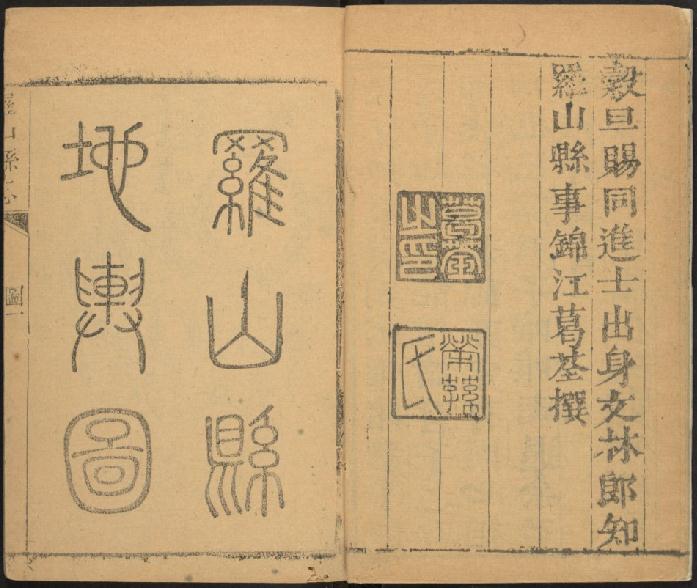 穀旦賜同進士出身文林郎知
羅山縣事錦江葛荃撰
葛荃
之印
氏
羅山縣
地輿圖
羅山縣志
圖一